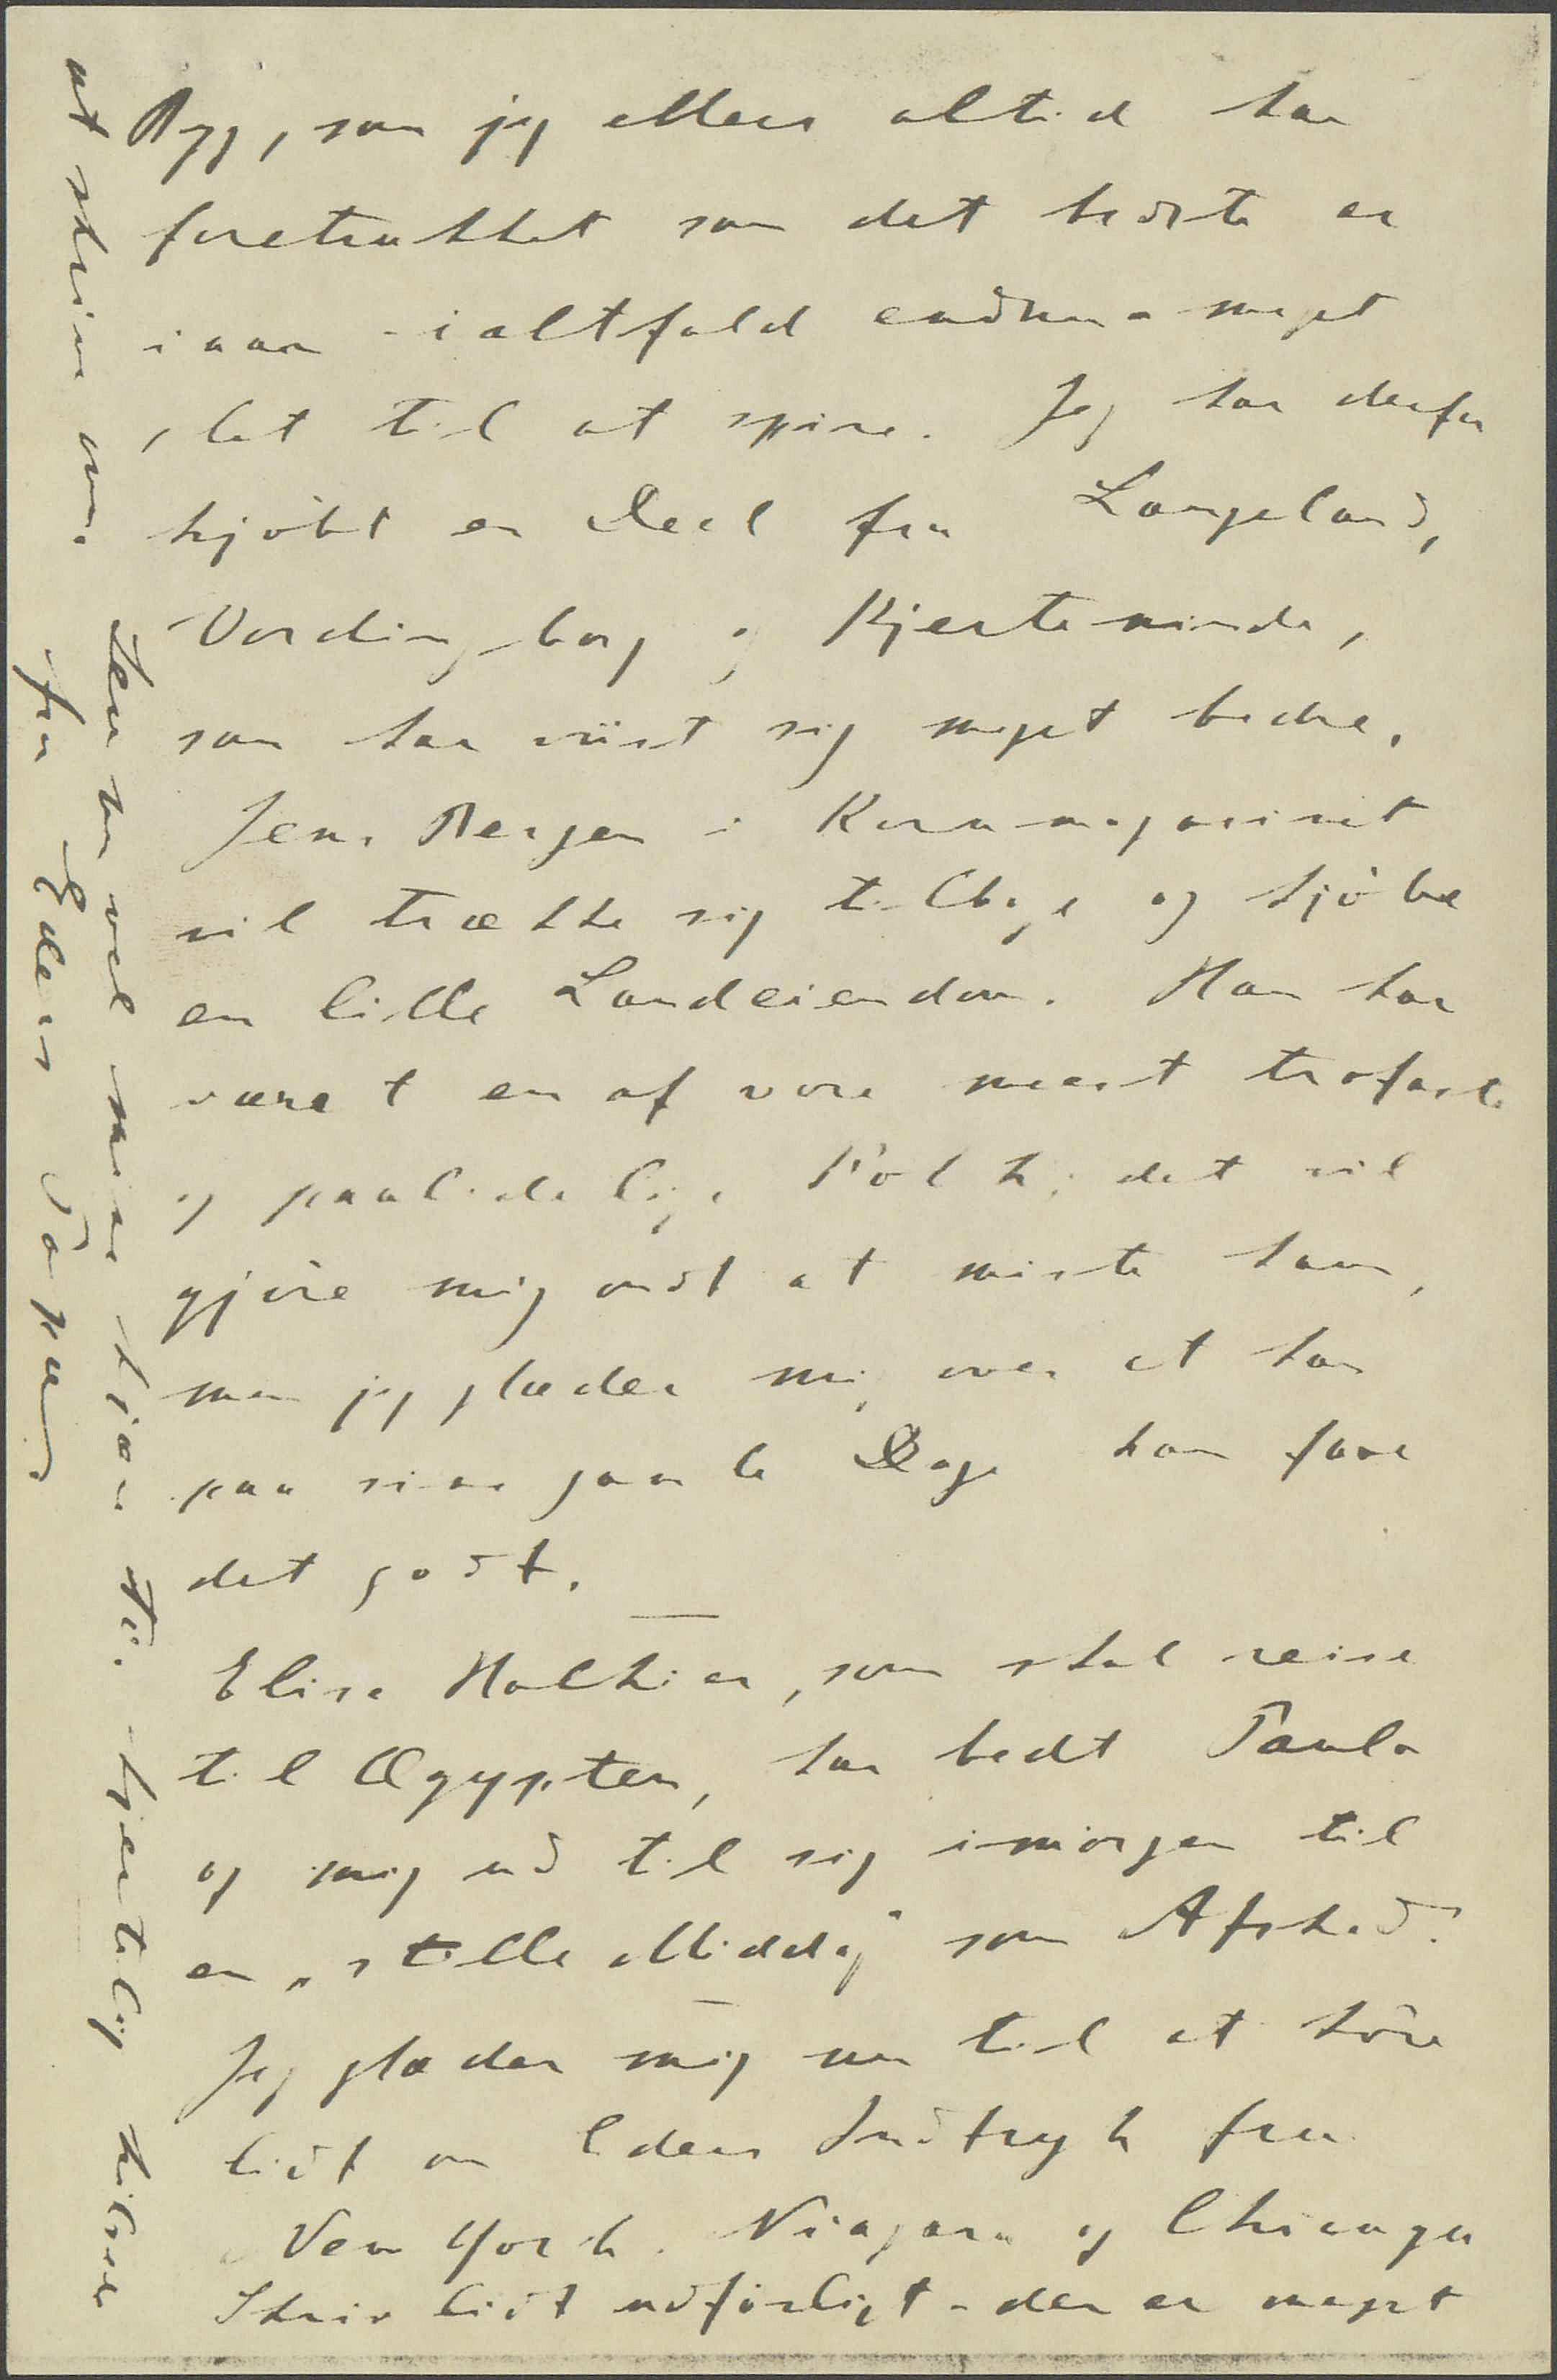 Byg, som jeg ellers altid har
foretrukket som det bedste er
iaar - ialtfald endnu - meget
slet til at spire. Jeg har derfor
kjöbt en Deel fra Langeland,
Vordingborg og Kjerteminde,
som har viist sig meget bedre.
Jens Bergen i Kornmagasinet
vil trække sig tilbage og kjöbe
en lille Landeiendom. Han har
været en af vore meest trofaste
og paalidelige Folk; det vil
gjöre mig ondt at miste ham,
men jeg glæder mig over at han
paa sine gamle Dage kan faae
det godt.
Elise Holkier, som skal reise
til Ægypten, har bedt Paula
og mig ud til sig imorgen til
en "stille Middag" som Afsked.
Jeg glæder mig nu til at höre
lidt om Eders Indtryk fra
New York, Niagara og Chicago
Skriv lidt udförligt - der er meget
at skrive om.
Lev nu vel mine kjære to. Hjertelig Hilsen
fra Eders Papa